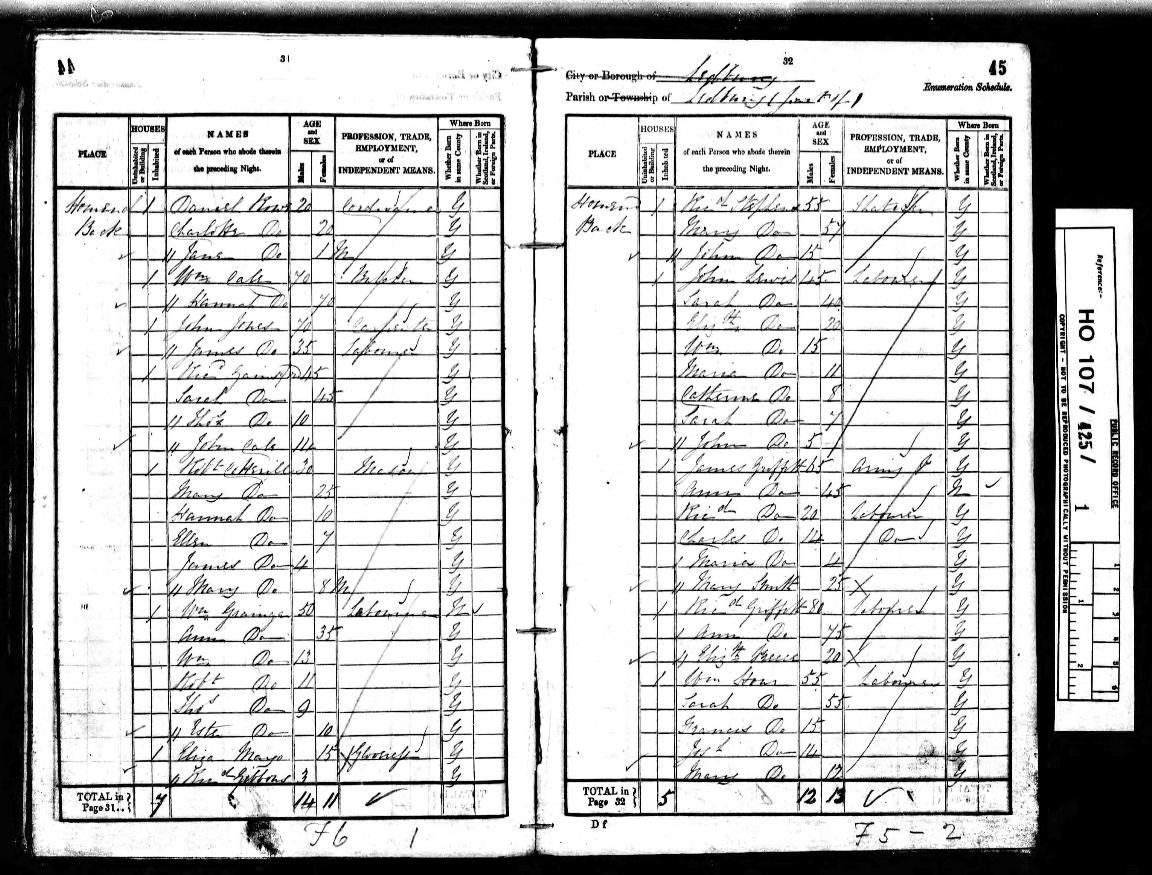 44
31
PLACE
HOUSES
Uninhabited or Building
Inhabited
NAMES
of each Person who abode therein
the preceding Night.
AGE and SEX
Males
Females
PROFESSION, TRADE,
EMPLOYMENT,
or of
INDEPENDENT MEANS.
Where Born
Whether Born in same County
Whether Born in Scotland, Ireland, or Foreign Parts.
Homend 1 Daniel 20 Y
Back Charlotte Do 20 Y
Jane Do 1 M Y
1 Wm Cale 70 Y
Hannah Do 70 Y
1 John Jones 70 Carpenter Y
James Do 35 Labourer Y
1 Ricd 45 Y
Sarah Do 45 Y
Thos Do 10 Y
John Cale 14 Y
1 Robt Cotterill 30 Mason Y
Mary Do 25 Y
Hannah Do 10 Y
Ellen Do 7 Y
James Do 4 Y
Mary Do 8 M Y
1 Wm Grainger 50 Labourer N
Ann Do 35 Y
Wm Do 13 Y
Robt Do 11 Y
Thos Do 9 Y
Ester Do 10 Y
1 Eliza Mayo 15 Y
Ricd Gibbons 3 Y
TOTAL in Page 31.. 7 14 11
F6 1
32
45
City or Borough of Ledbury
Enumeration Schedule.
Parish or Township of Ledbury (part of)
PLACE
HOUSES
Uninhabited or Building
Inhabited
NAMES
of each Person who abode therein
the preceding Night.
AGE and SEX
Males
Females
PROFESSION, TRADE,
EMPLOYMENT,
or of
INDEPENDENT MEANS.
Where Born
Whether Born in same County
Whether Born in Scotland, Ireland, or Foreign Parts.
Homend 1 Ricd Stephens 55 Y
Back Mary Do 57 Y
John Do 15 Y
1 John Lewis 45 Labourer Y
Sarah Do 40 Y
Elizth Do 20 Y
Wm Do 15 Y
Maria Do 11 Y
Catherine Do 8 Y
Sarah Do 7 Y
John Do 5 Y
1 James Griffith 65 Army P Y
Ann Do 45 N
Ricd Do 20 Labourer Y
Charles Do 14 Do Y
Maria Do 4 Y
Mary Smith 25 Y
1 Ricd Griffith 80 Labourer Y
Ann Do 75 Y
Elizth 20 Y
1 Wm 55 Labourer Y
Sarah Do 55 Y
Francis Do 15 Y
Josh Do 14 Y
Mary Do 12 Y
TOTAL in Page 32 5 12 13
D f
F5 - 2
Reference:-
HO 107 / 425 / 1
PUBLIC RECORD OFFICE
COPYRIGHT - NOT TO BE REPRODUCED PHOTOGRAPHICALLY WITHOUT PERMISSION